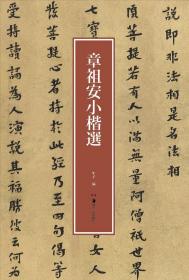 說即非法相是名法相
須菩提若有人以滿無量阿僧祇世
七寶
女人
發菩提心者持於此經乃至四句偈等
受持讀誦為人演說其福勝彼云何
章祖安小楷選